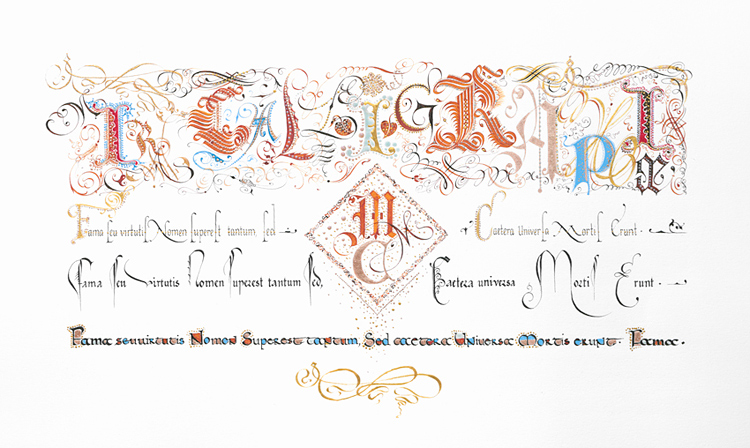 I CALIGR
M C
Fama seu virtutis Nomen superest tantum, sed Caetera Universa Mortis Erunt.
Fama seu Virtutis Nomen superest tantum sed, Caetera universa Mortis Erunt.
Fama seu virtutis Nomen Superest tantum, Sed caetera Universa Mortis erunt Fama.